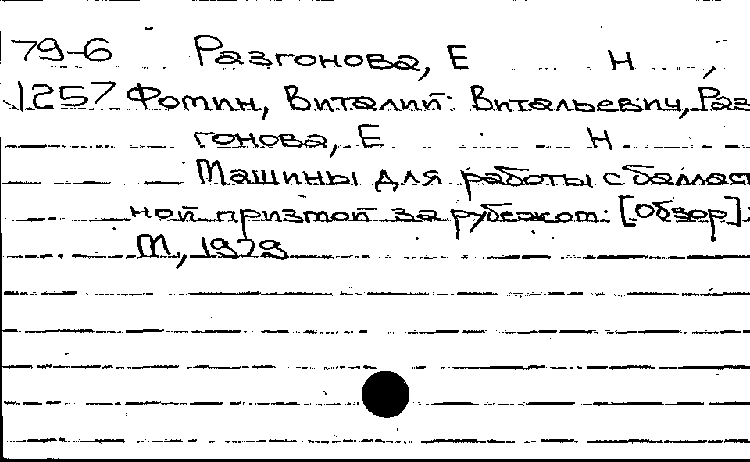 79-6 Разгонова, Е Н ,
1257 Фомин, Виталий Витальевич, Раз
гонова, Е Н
Машины для работы с балласт
ной призмой за рубежом: [Обзор].
М, 1979